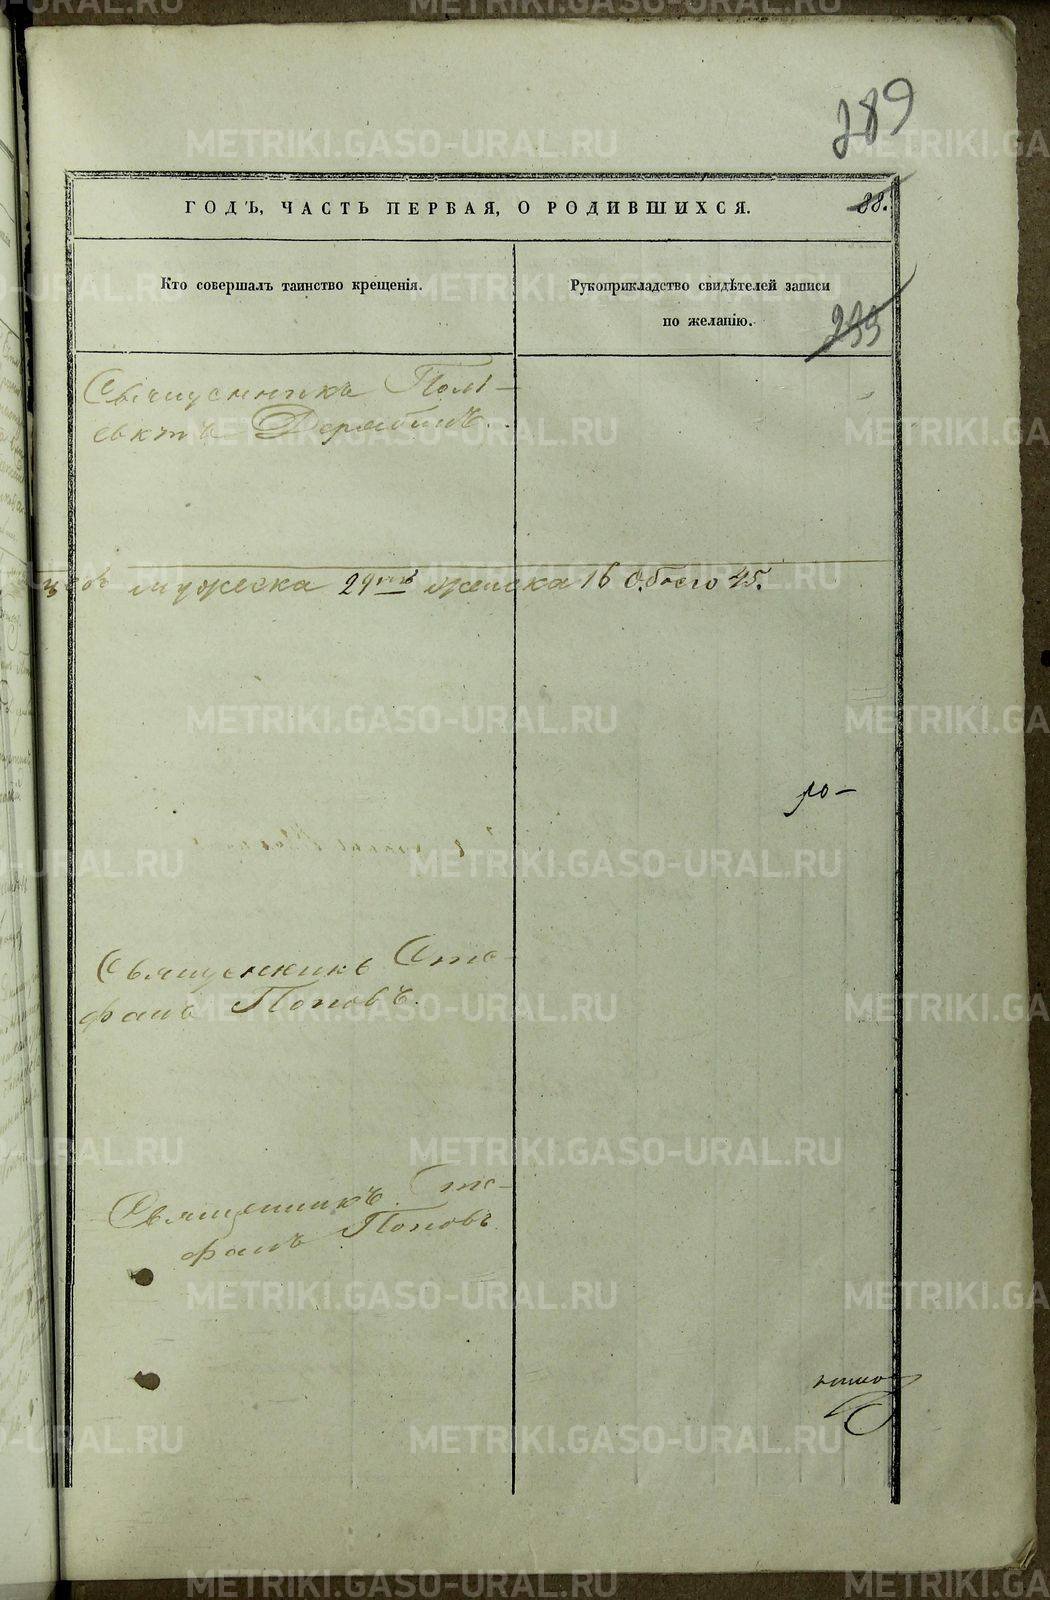 289
ГОДЪ, ЧАСТЬ ПЕРВАЯ, О РОДИВШИХСЯ.
88.
Кто совершалъ таинство крещенія.
Рукоприкладство свидѣтелей записи
по желанію.
Священникъ Полі-
евктъ Дерябинъ.
мужеска 29ть женска 16 Обоего 45.
ро-
Священникъ Сте-
фанъ Поповъ.
Священникъ Сте-
фанъ Поповъ
METRIKI.GASO-URAL.RU